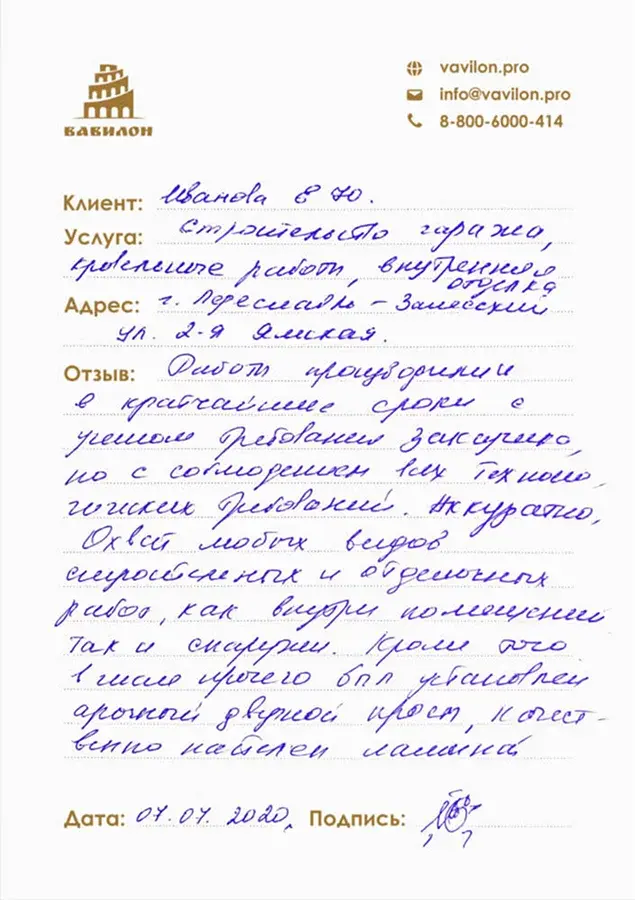 ВАВИЛОН
vavilon.pro
info@vavilon.pro
8-800-6000-414
Клиент: Иванова Е Ю.
Услуга: Строительство гаража,
кровельные работы, внутренняя
отделка
Адрес: г. Переславль-Залесский
ул. 2-я Ямская.
Отзыв: Работы производили
в кратчайшие сроки с
учетом требования Заказчика,
но с соблюдением всех техноло
гических требований. Аккуратно,
Охват любых видов
строительных и отделочных
работ, как внутри помещений
так и снаружи. Кроме того
в числе прочего был установлен
арочный дверной проем, качест-
венно настелен ламинат
Дата: 07.07.2020, Подпись: